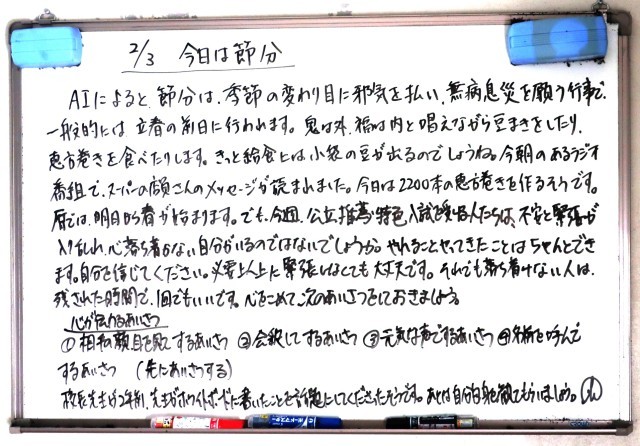 2/3 今日は節分
AIによると、節分は、季節の変わり目に邪気を払い、無病息災を願う行事で、
一般的には立春の前日に行われます。鬼は外、福は内と唱えながら豆まきをしたり、
恵方巻きを食べたりします。きっと給食には小袋の豆が出るのでしょうね。今朝のあるラジオ
番組で、スーパーの店員さんのメッセージが読まれました。今日は2200本の恵方巻きを作るそうです。
暦では、明日から春が始まります。でも、今週、公立推薦・特色入試を受ける人たちは、不安と緊張が
入り乱れ、心落ち着かない自分がいるのではないでしょうか。やれることやってきたことはちゃんとでき
ます。自分を信じてください。必要以上に緊張しなくても大丈夫です。それでも落ち着けない人は、
残された時間で、1回でもいいです。心をこめて、次のあいさつをしておきましょう。
心が伝わるあいさつ
①相手の顔・目を見てするあいさつ ②会釈してするあいさつ ③元気な声でするあいさつ ④名前を呼んで
するあいさつ (先にあいさつする)
校長先生が2年前、先生がホワイトボードに書いたことを話題にしてくださったそうです。あとは自分自身を観てもらいましょう。